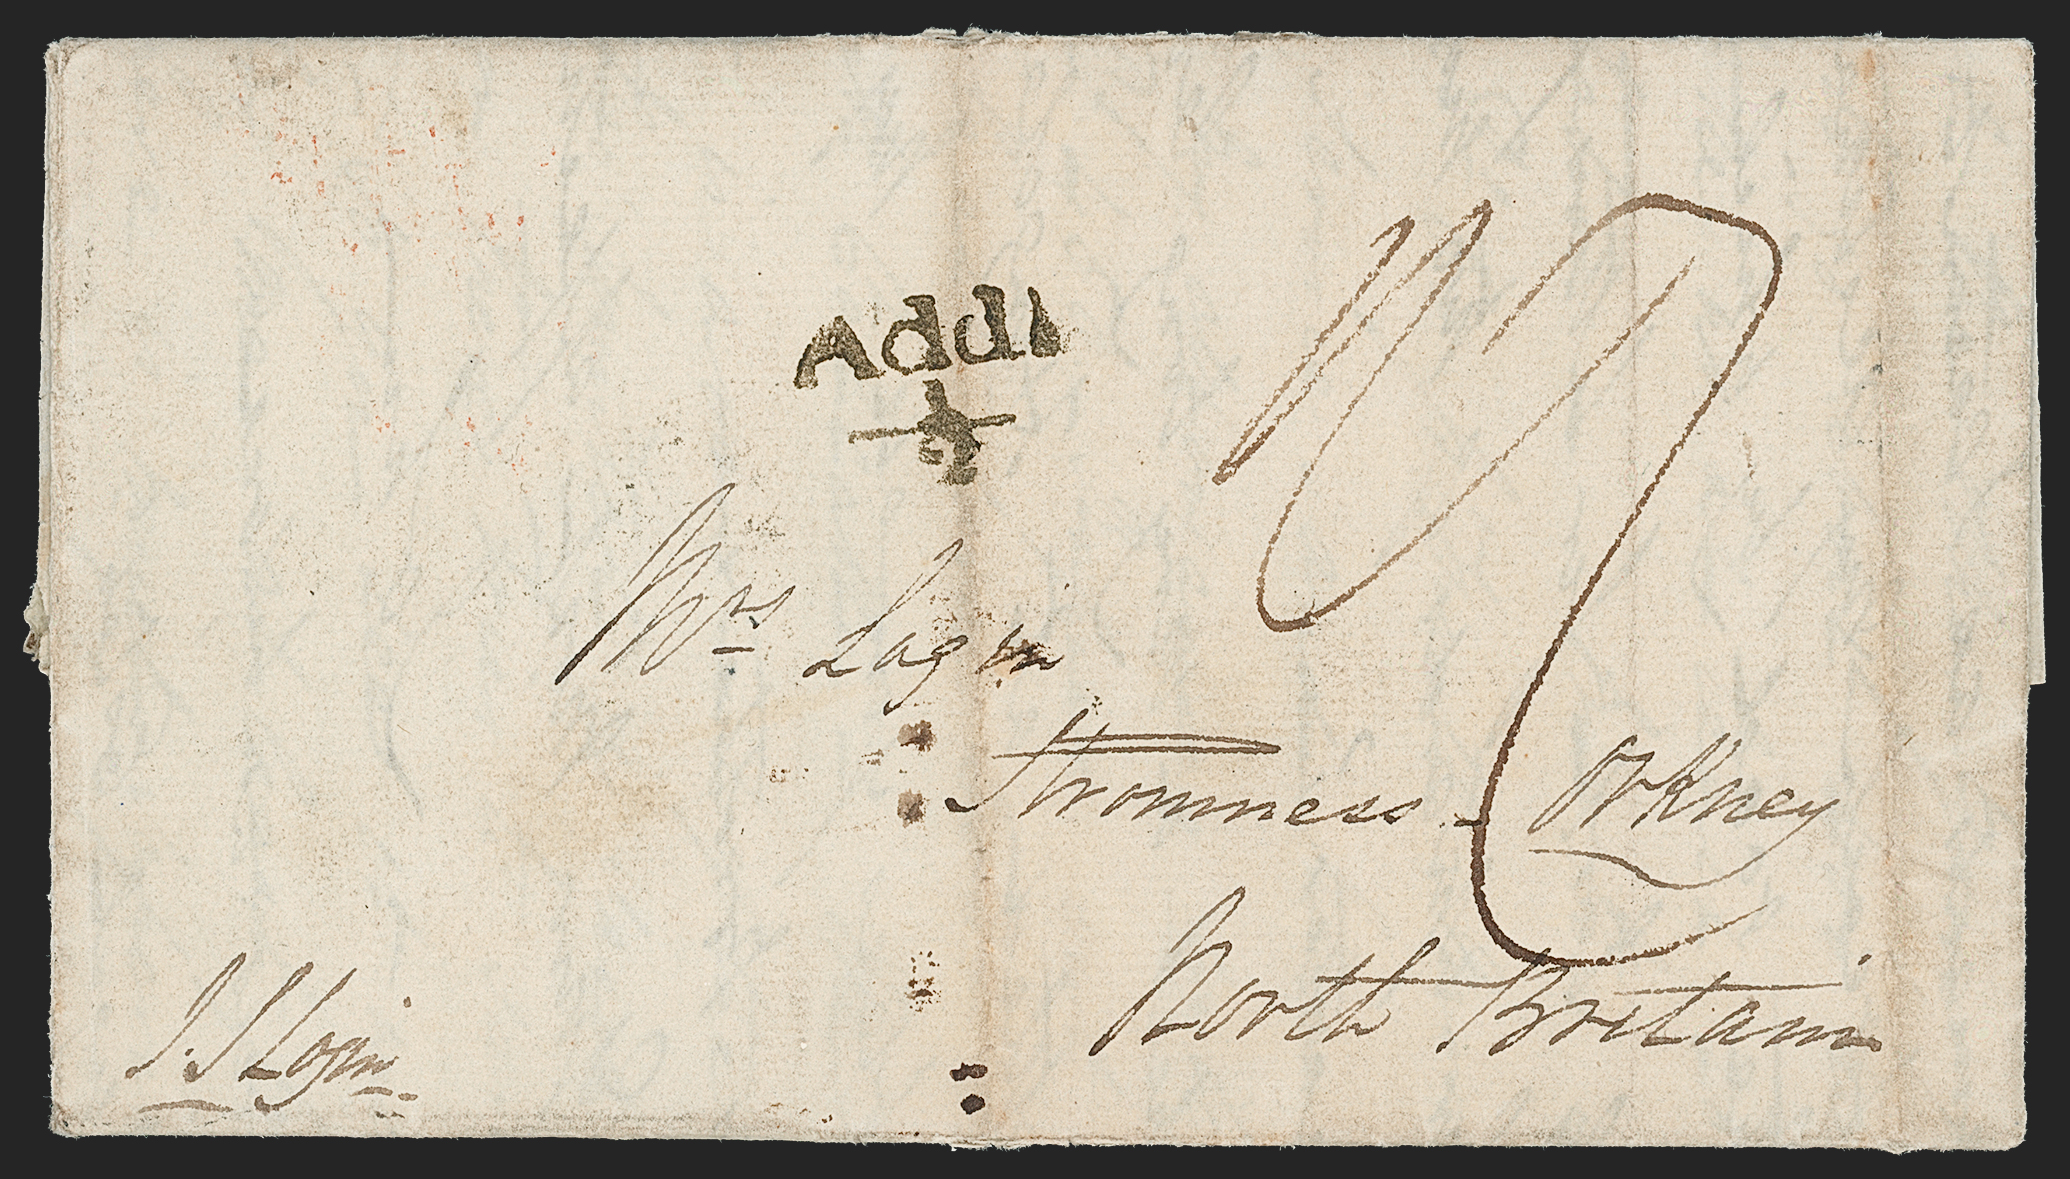 Addl
½
Mrs Login
Stromness - Orkney
North Britain
J. S Login